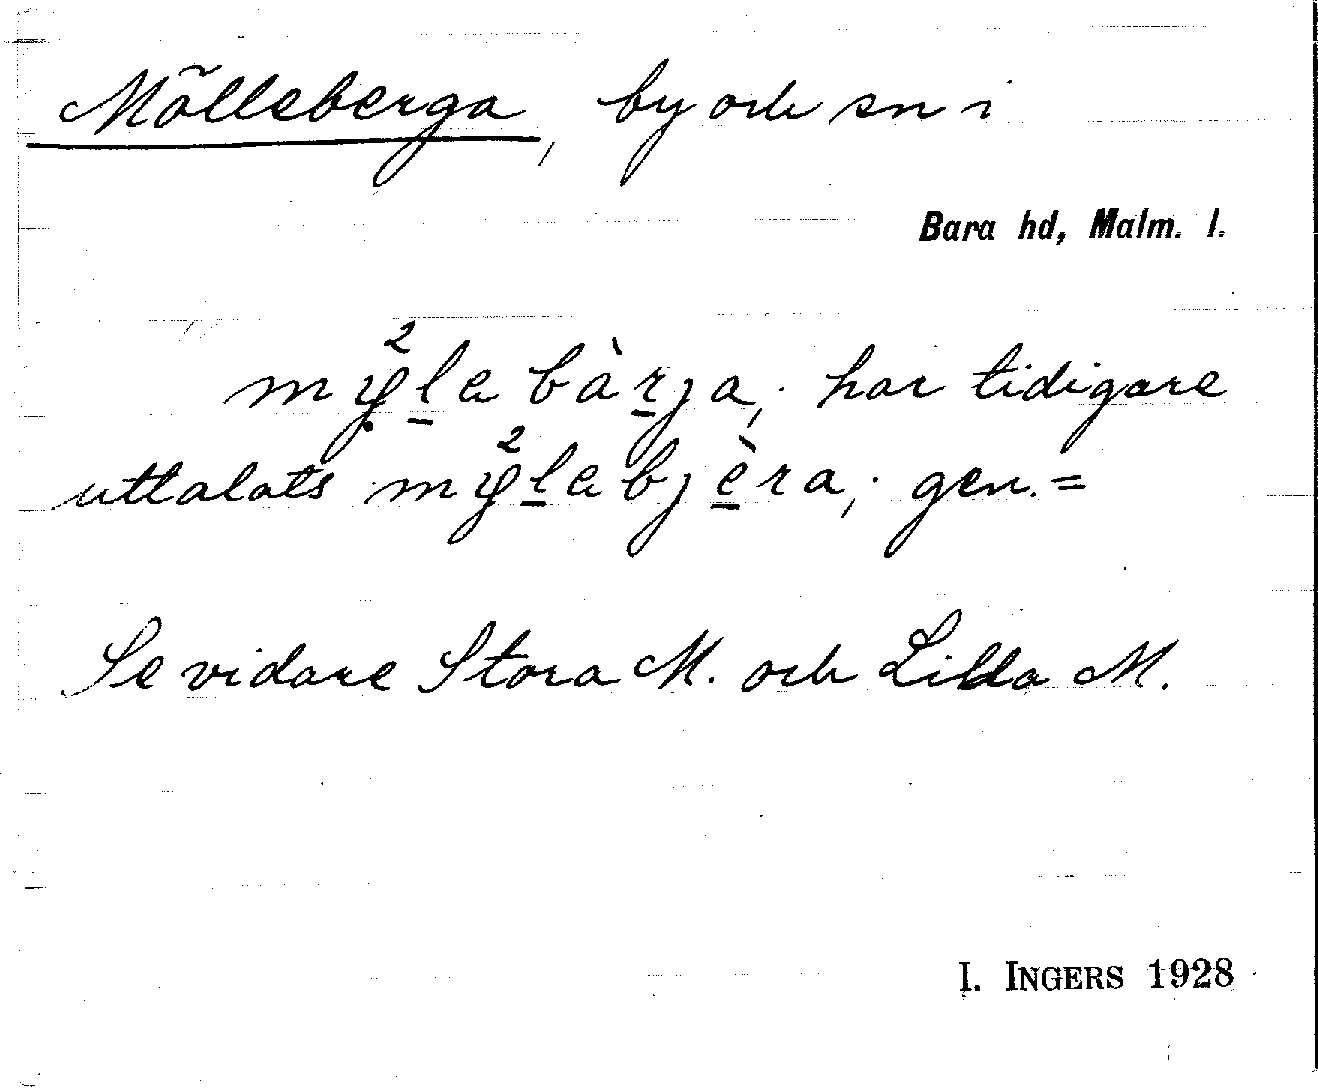 Mölleberga, by och sn i
Bara hd, Malm. l.
mø̣²l̲ebàr̲ja; har tidigare
uttalats mø²l̲ebjè̲ra; gen.=
Se vidare Stora M. och Lilla M.
I. INGERS 1928